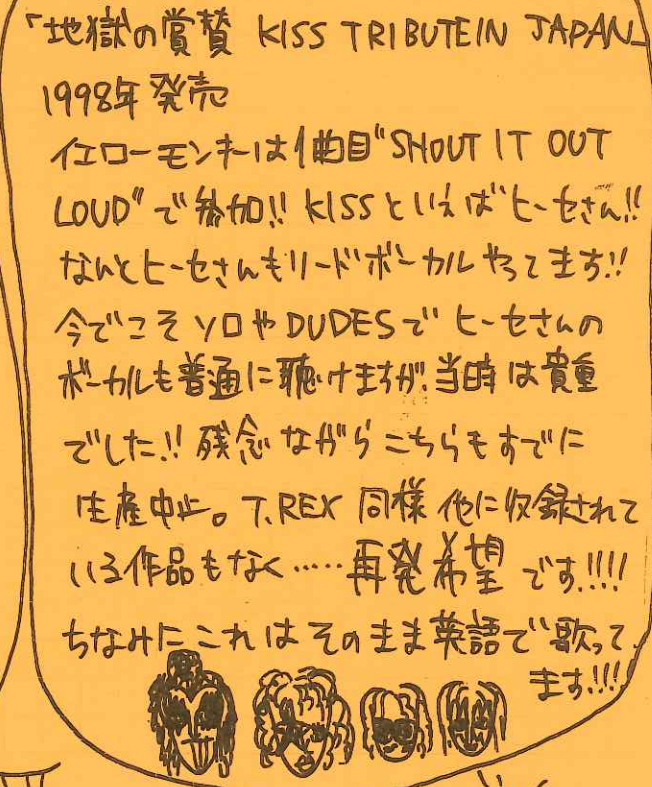 「地獄の賞賛 KISS TRIBUTEIN JAPAN」
1998年発売
イエローモンキーは1曲目"SHOUT IT OUT
LOUD"で参加!! KISSといえばヒーセさん!!
なんとヒーセさんもリードボーカルやってます!!
今でこそソロやDUDESでヒーセさんの
ボーカルも普通に聴けますが、当時は貴重
でした!! 残念ながらこちらもすでに
生産中止。T.REX同様他に収録されて
いる作品もなく……再発希望です!!!!
ちなみにこれはそのまま英語で歌って
ます!!!!